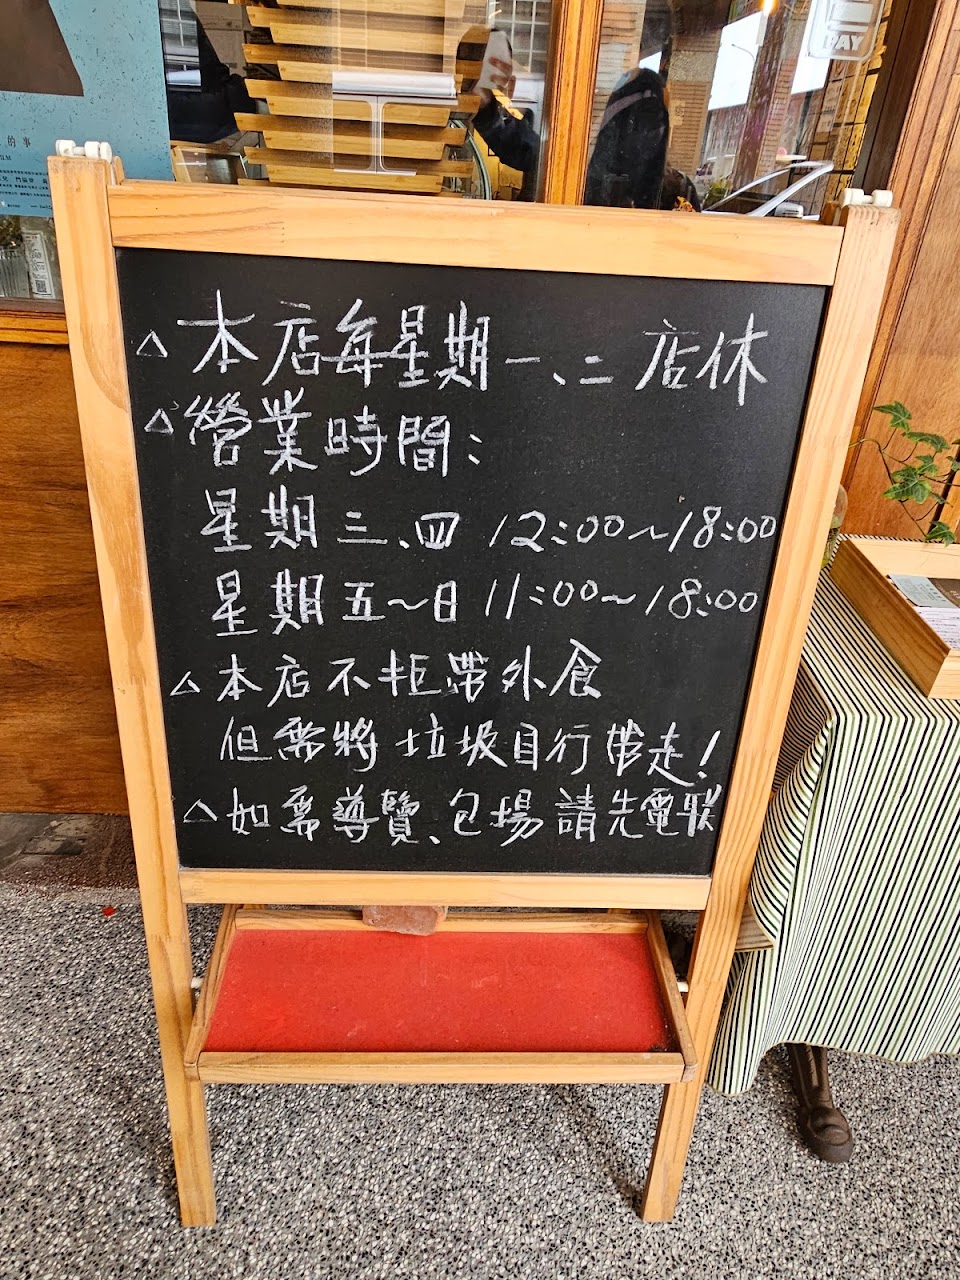 的事
PAY
△本店每星期一、二店休
△營業時間：
星期三、四 12:00~18:00
星期五~日 11:00~18:00
△本店不拒帶外食
但需將垃圾自行帶走！
△如需導覽、包場請先電聯